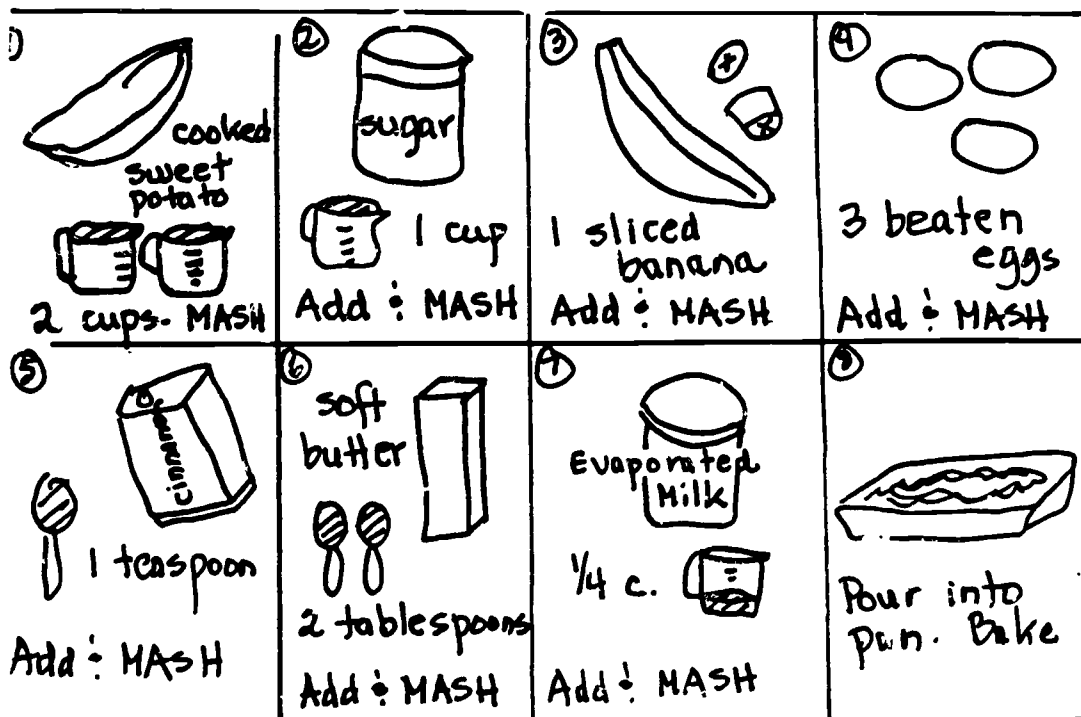 ①
cooked
sweet
potato
2 cups. MASH
②
sugar
1 cup
Add & MASH
③
1 sliced
banana
Add & MASH
④
3 beaten
eggs
Add & MASH
⑤
cinnamon
1 teaspoon
Add & MASH
⑥
soft
butter
2 tablespoons
Add & MASH
⑦
Evaporated
Milk
1/4 c.
Add & MASH
⑧
Pour into
pan. Bake